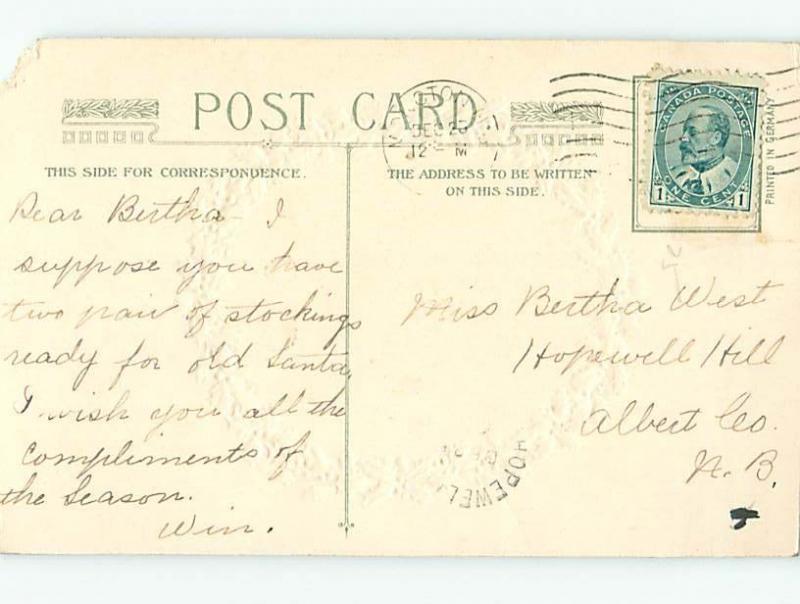 POST CARD
THIS SIDE FOR CORRESPONDENCE.
THE ADDRESS TO BE WRITTEN
ON THIS SIDE.
DEC 23
12 M
CANADA POSTAGE
ONE CENT
1 1
PRINTED IN GERMANY
Dear Bertha - I
suppose you have
two pair of stockings
ready for old Santa.
I wish you all the
compliments of
the Season.
Win.
Miss Bertha West
Hopewell Hill
Albert Co.
N. B.
HOPEWEL